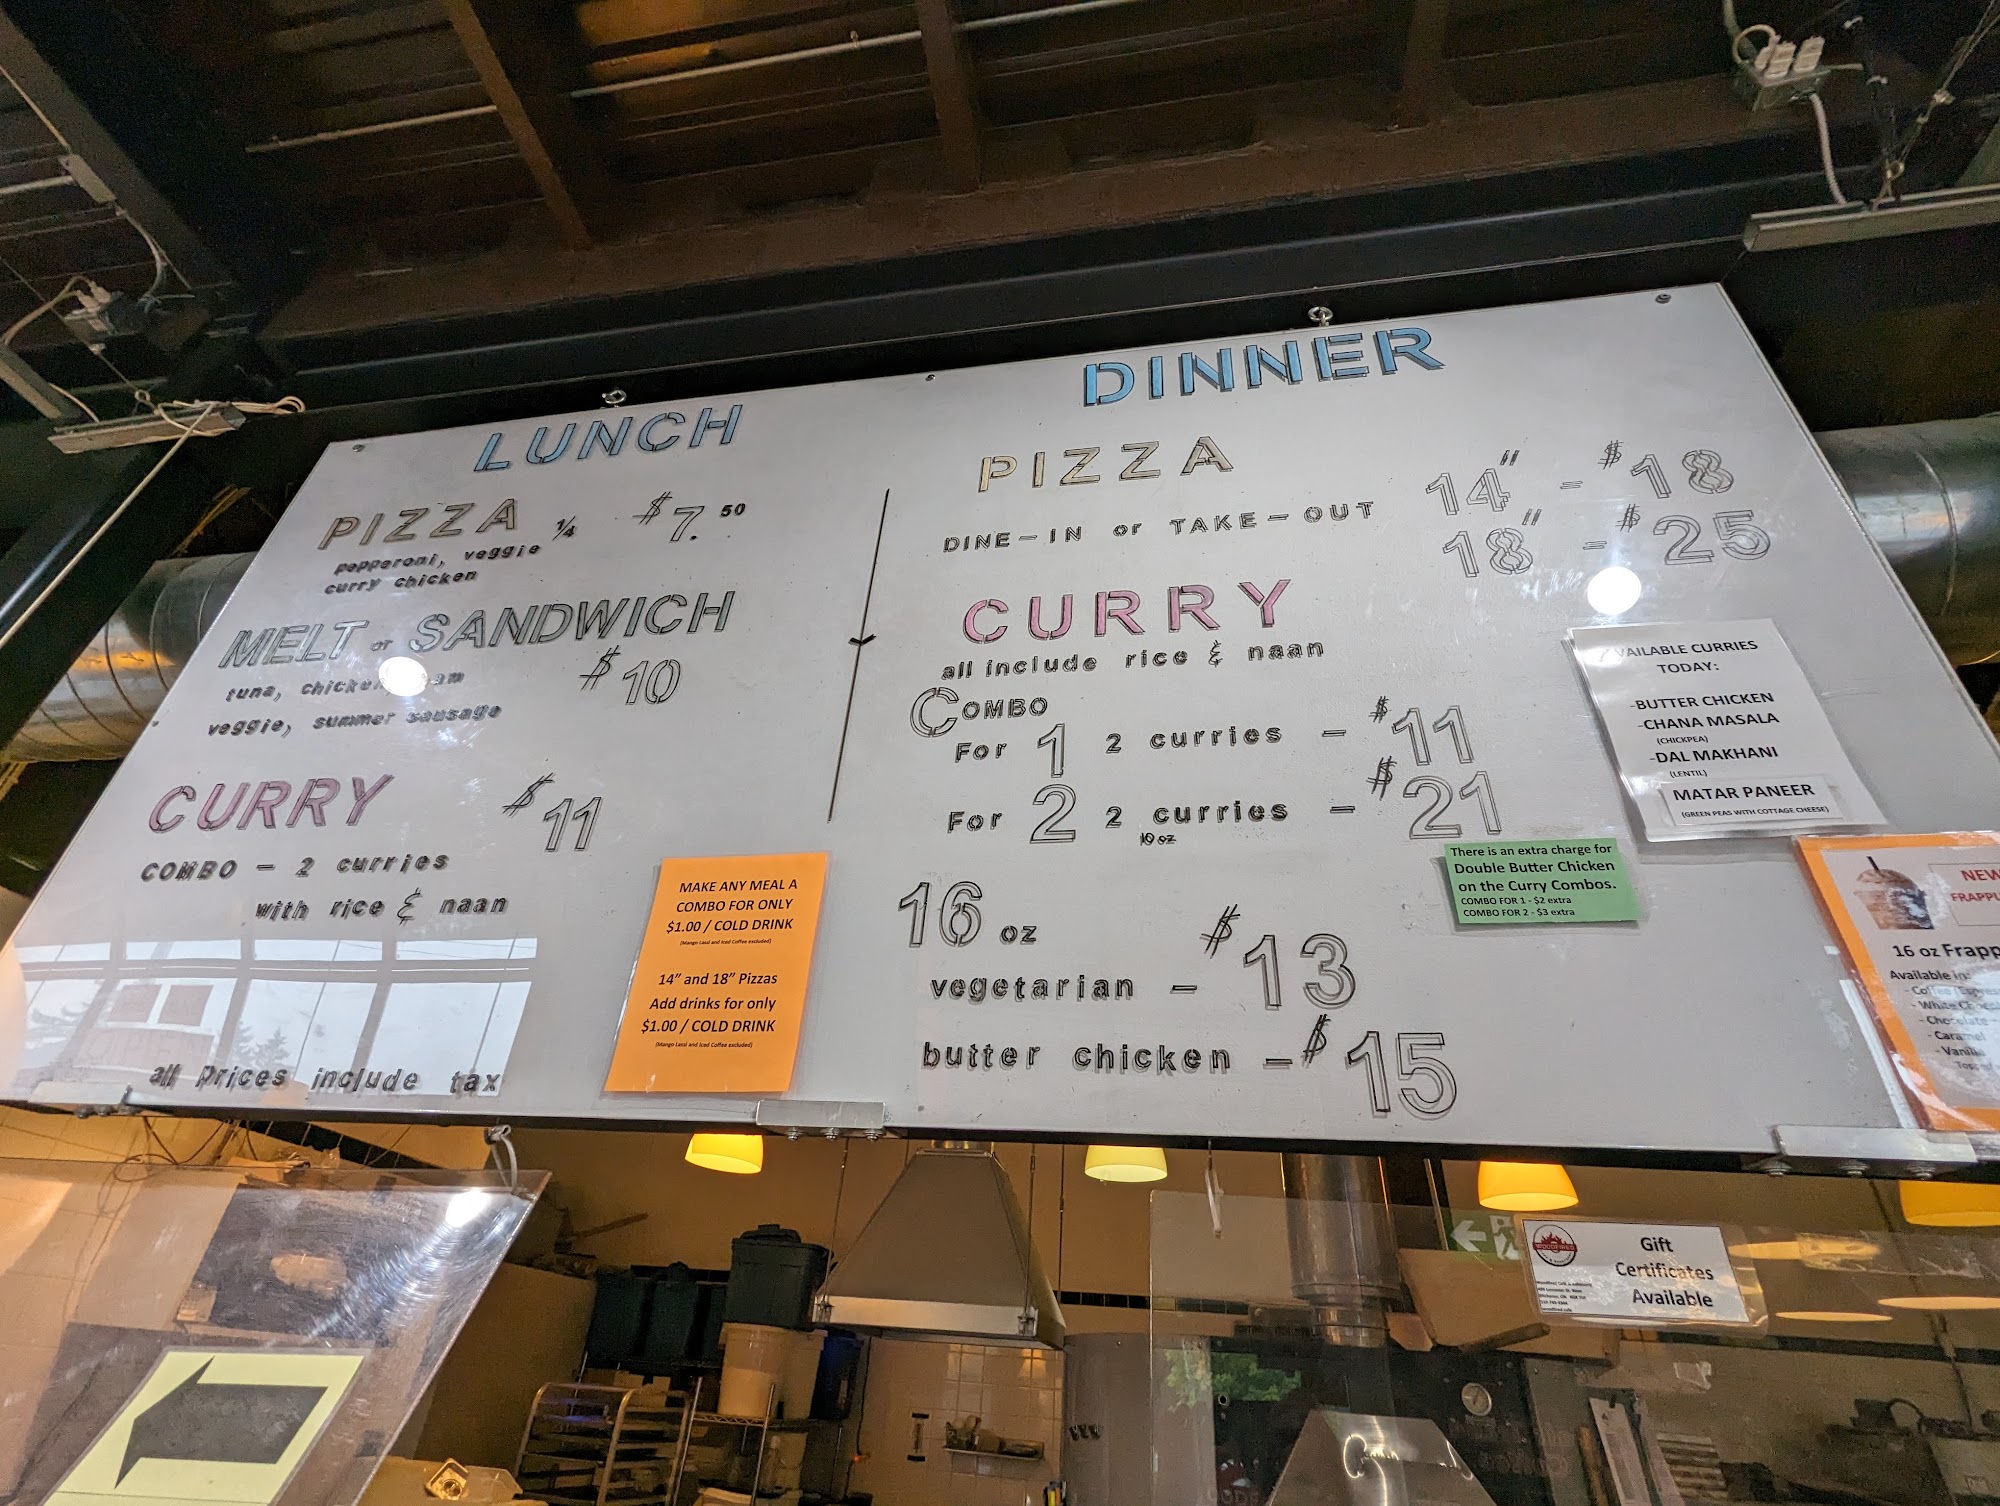 LUNCH
PIZZA 1/4 $7.50
pepperoni, veggie
curry chicken
MELT or SANDWICH
$10
tuna, chicken
veggie, summer sausage
CURRY $11
COMBO - 2 curries
with rice & naan
all prices include tax
MAKE ANY MEAL A
COMBO FOR ONLY
$1.00 / COLD DRINK
(Mango Lassi and Iced Coffee excluded)
14" and 18" Pizzas
Add drinks for only
$1.00 / COLD DRINK
(Mango Lassi and Iced Coffee excluded)
DINNER
PIZZA
DINE-IN or TAKE-OUT
14" - $18
18" - $25
CURRY
all include rice & naan
COMBO
For 1 2 curries - $11
For 2 2 curries - $21
10 oz
16 oz
vegetarian - $13
butter chicken - $15
AVAILABLE CURRIES
TODAY:
-BUTTER CHICKEN
-CHANA MASALA
(CHICKPEA)
-DAL MAKHANI
(LENTIL)
MATAR PANEER
(GREEN PEAS WITH COTTAGE CHEESE)
There is an extra charge for
Double Butter Chicken
on the Curry Combos.
COMBO FOR 1 - $2 extra
COMBO FOR 2 - $3 extra
NEW
FRAPPU
16 oz Frapp
Available in:
- White
- Chocolate
- Caramel
- Vanilla
WOODFIRED
Gift
Certificates
Available